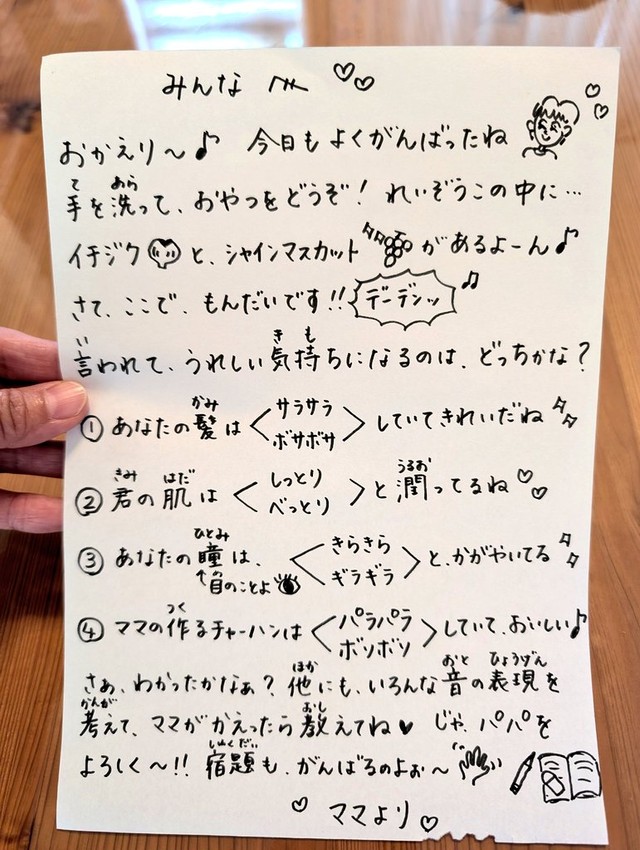 みんな へ
おかえり〜♪ 今日も よくがんばったね
て あら
手を洗って、おやつをどうぞ! れいぞうこの中に…
イチジク と、シャインマスカット がある よーん♪
さて、ここで、もんだいです!! デーデンッ
い き も
言われて、うれしい気持ちになるのは、どっちかな?
かみ
① あなたの髪は <サラサラ
ボサボサ> していて きれいだね
きみ はだ うるお
② 君の肌は <しっとり
べっとり> と潤ってるね♡♡
ひとみ
③ あなたの瞳は、 <きらきら
ギラギラ> と、かがやいてる
↑目のことよ
つく
④ ママの作るチャーハンは <パラパラ
ボソボソ> していて、おいしい♪
ほか おと ひょうげん
さぁ、わかったかなぁ? 他にも、いろんな音の表現を
かんが おし
考えて、ママが かえったら 教えてね♥ じゃ、パパを
しゅくだい
よろしく〜!! 宿題も、がんばるのよぉ〜
♡ ママより♡